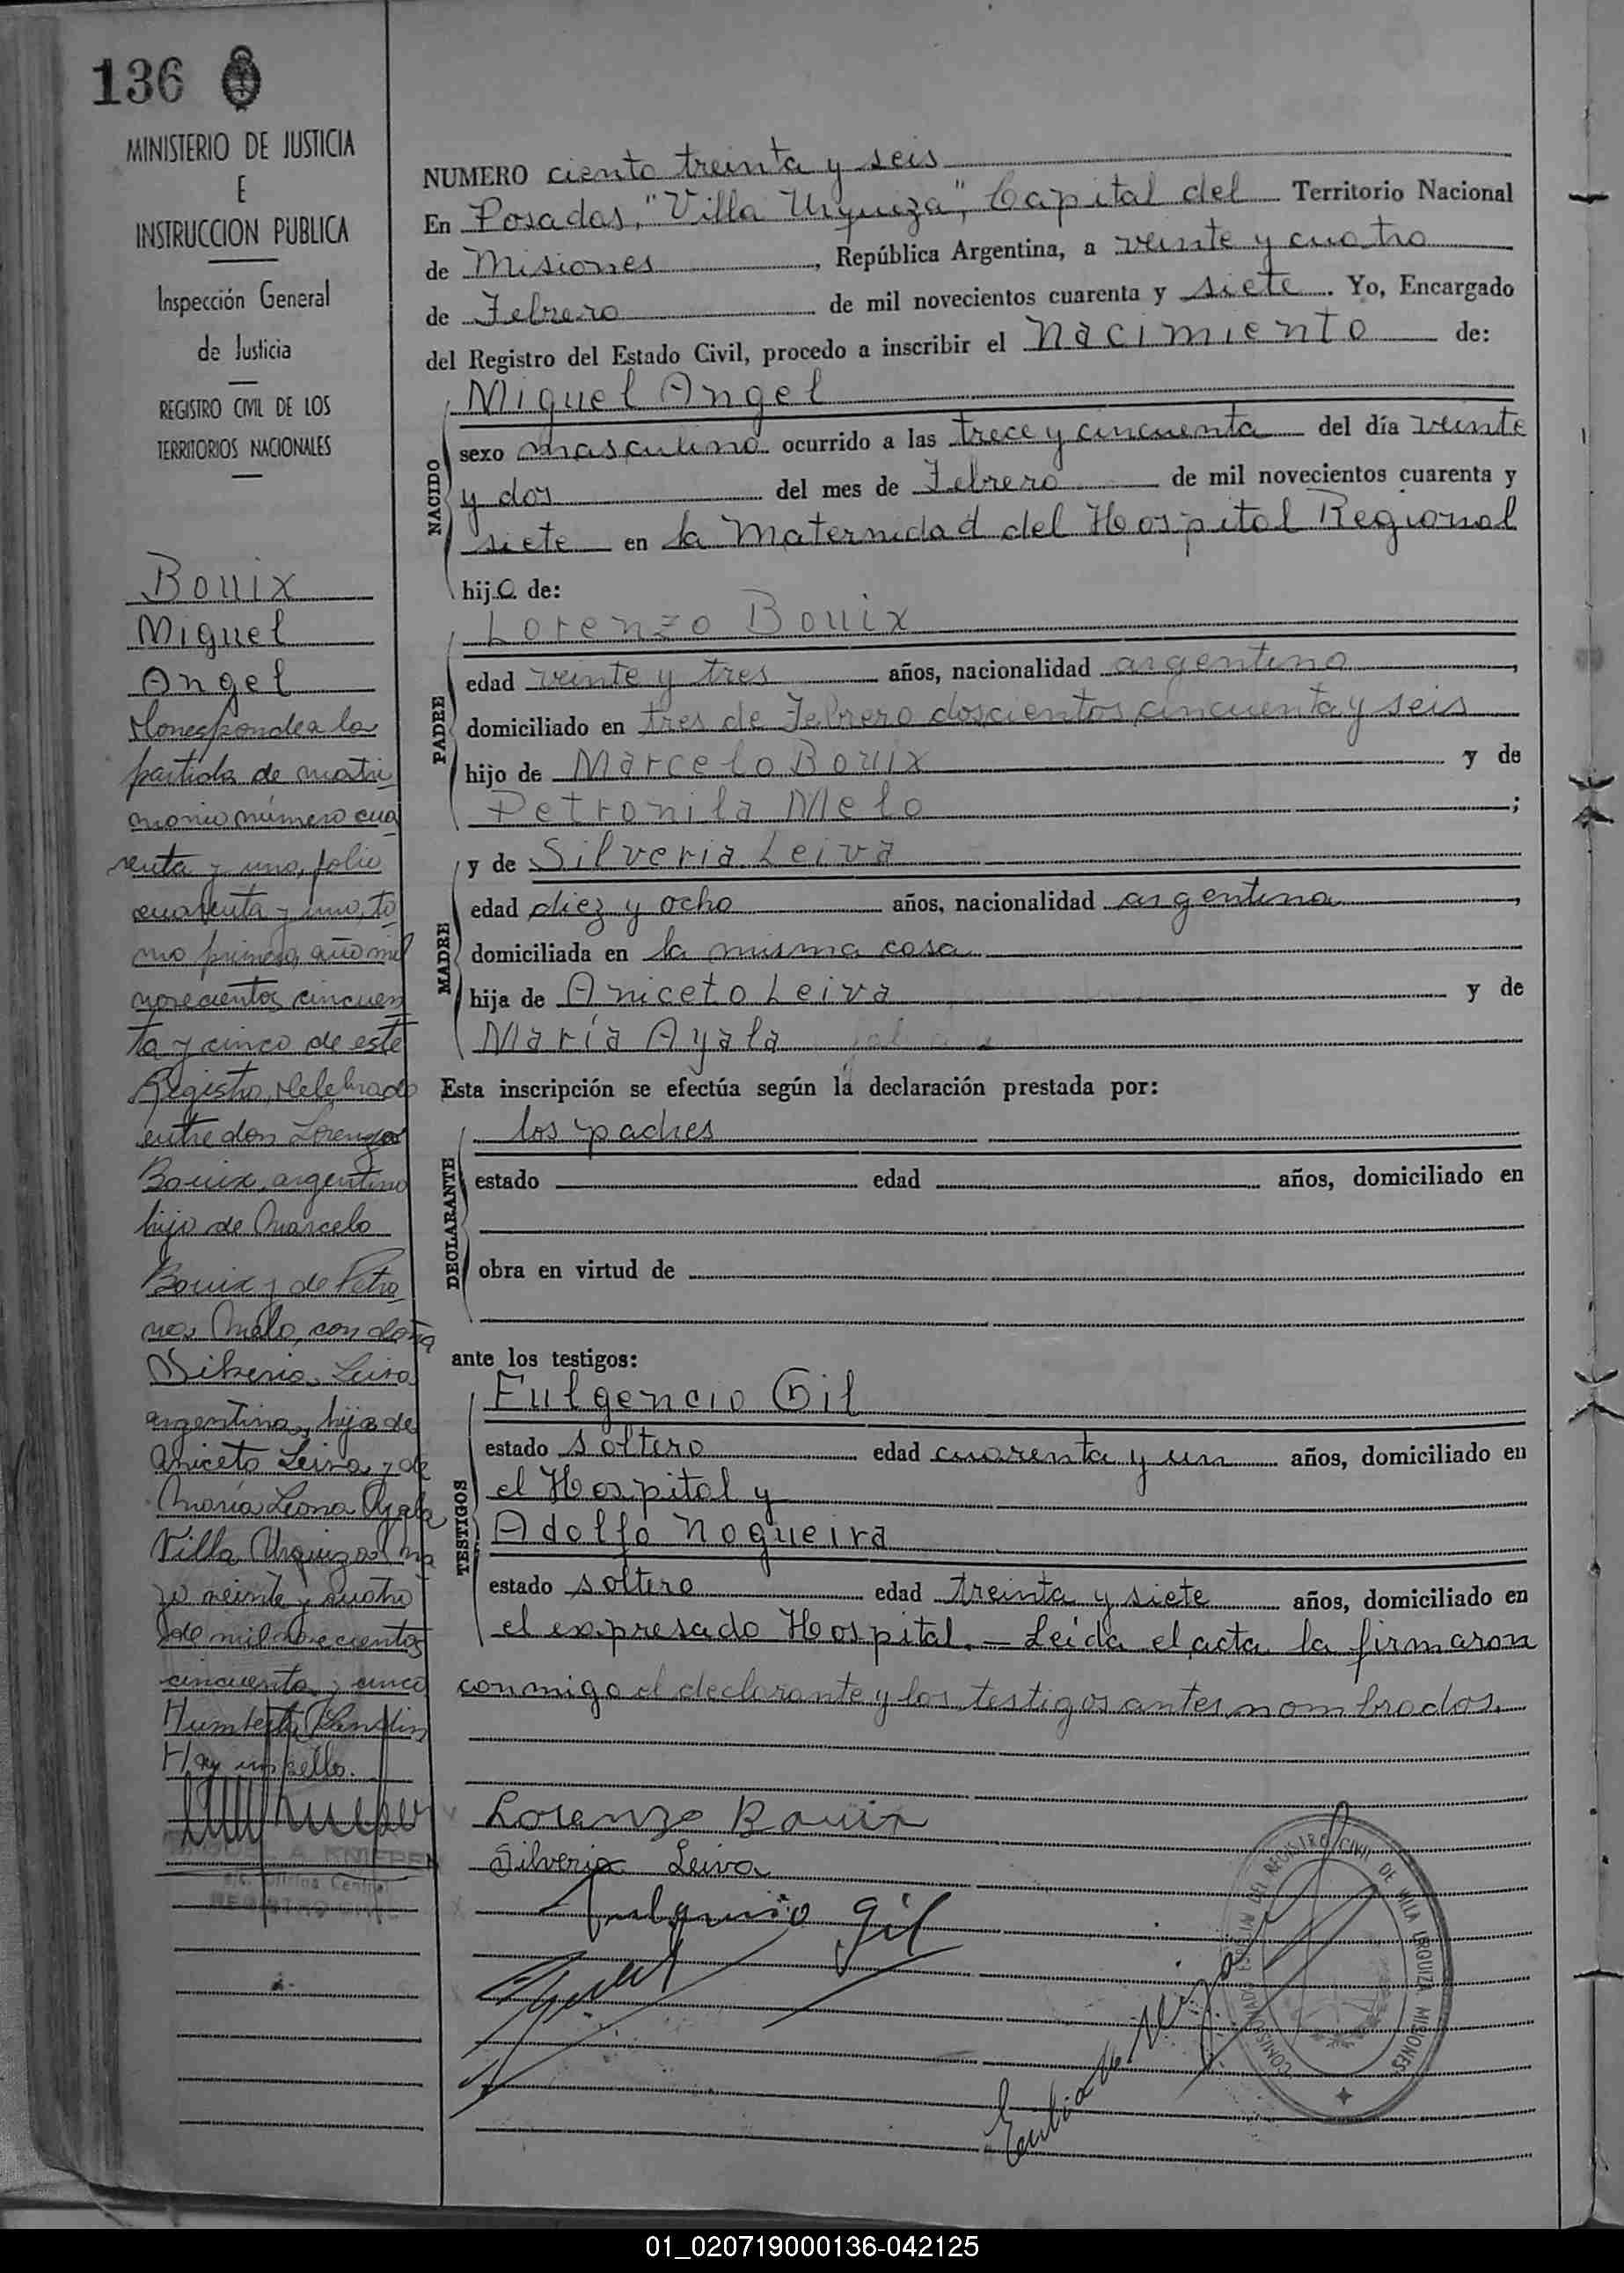 136
MINISTERIO DE JUSTICIA
E
INSTRUCCION PUBLICA
Inspección General
de Justicia
REGISTRO CIVIL DE LOS
TERRITORIOS NACIONALES
Bouix
Miguel
Angel
Corresponde a la
partida de matri
monio número cua
renta y uno, folio
cuarenta y uno, to
mo primero, año mil
novecientos cincuen
ta y cinco de este
Registro, celebrado
entre don Lorenzo
Bouix, argentino
hijo de Marcelo
Bouix y de Petro
na Melo, con doña
Silveria Leiva
argentina, hija de
Aniceto Leiva y de
María Leona Ayala
Villa Urquiza, ma
yo veinte y cuatro
de mil novecientos
cincuenta y cinco
Humberto
Hay un sello.
MIGUEL A. KNIEPER
Oficina Central
REGISTRO CIVIL
NUMERO ciento treinta y seis
En Posadas, "Villa Urquiza", Capital del Territorio Nacional
de Misiones, República Argentina, a veinte y cuatro
de Febrero de mil novecientos cuarenta y siete. Yo, Encargado
del Registro del Estado Civil, procedo a inscribir el Nacimiento de:
NACIDO
Miguel Angel
sexo masculino ocurrido a las trece y cincuenta del día veinte
y dos del mes de Febrero de mil novecientos cuarenta y
siete en la Maternidad del Hospital Regional
hijo de:
PADRE
Lorenzo Bouix
edad veinte y tres años, nacionalidad argentino,
domiciliado en tres de Febrero doscientos cincuenta y seis
hijo de Marcelo Bouix y de
Petronila Melo;
MADRE
y de Silveria Leiva
edad diez y ocho años, nacionalidad argentina,
domiciliada en la misma casa
hija de Aniceto Leiva y de
María Ayala
Esta inscripción se efectúa según la declaración prestada por:
DECLARANTE
los padres
estado edad años, domiciliado en
obra en virtud de
ante los testigos:
TESTIGOS
Fulgencio Gil
estado soltero edad cuarenta y un años, domiciliado en
el Hospital y
Adolfo Nogueira
estado soltero edad treinta y siete años, domiciliado en
el expresado Hospital.— Leída el acta la firmaron
conmigo el declarante y los testigos antes nombrados.
Lorenzo Bouix
Silveria Leiva
Fulgencio Gil
REGISTRO CIVIL DE VILLA URQUIZA MISIONES
01_020719000136-042125